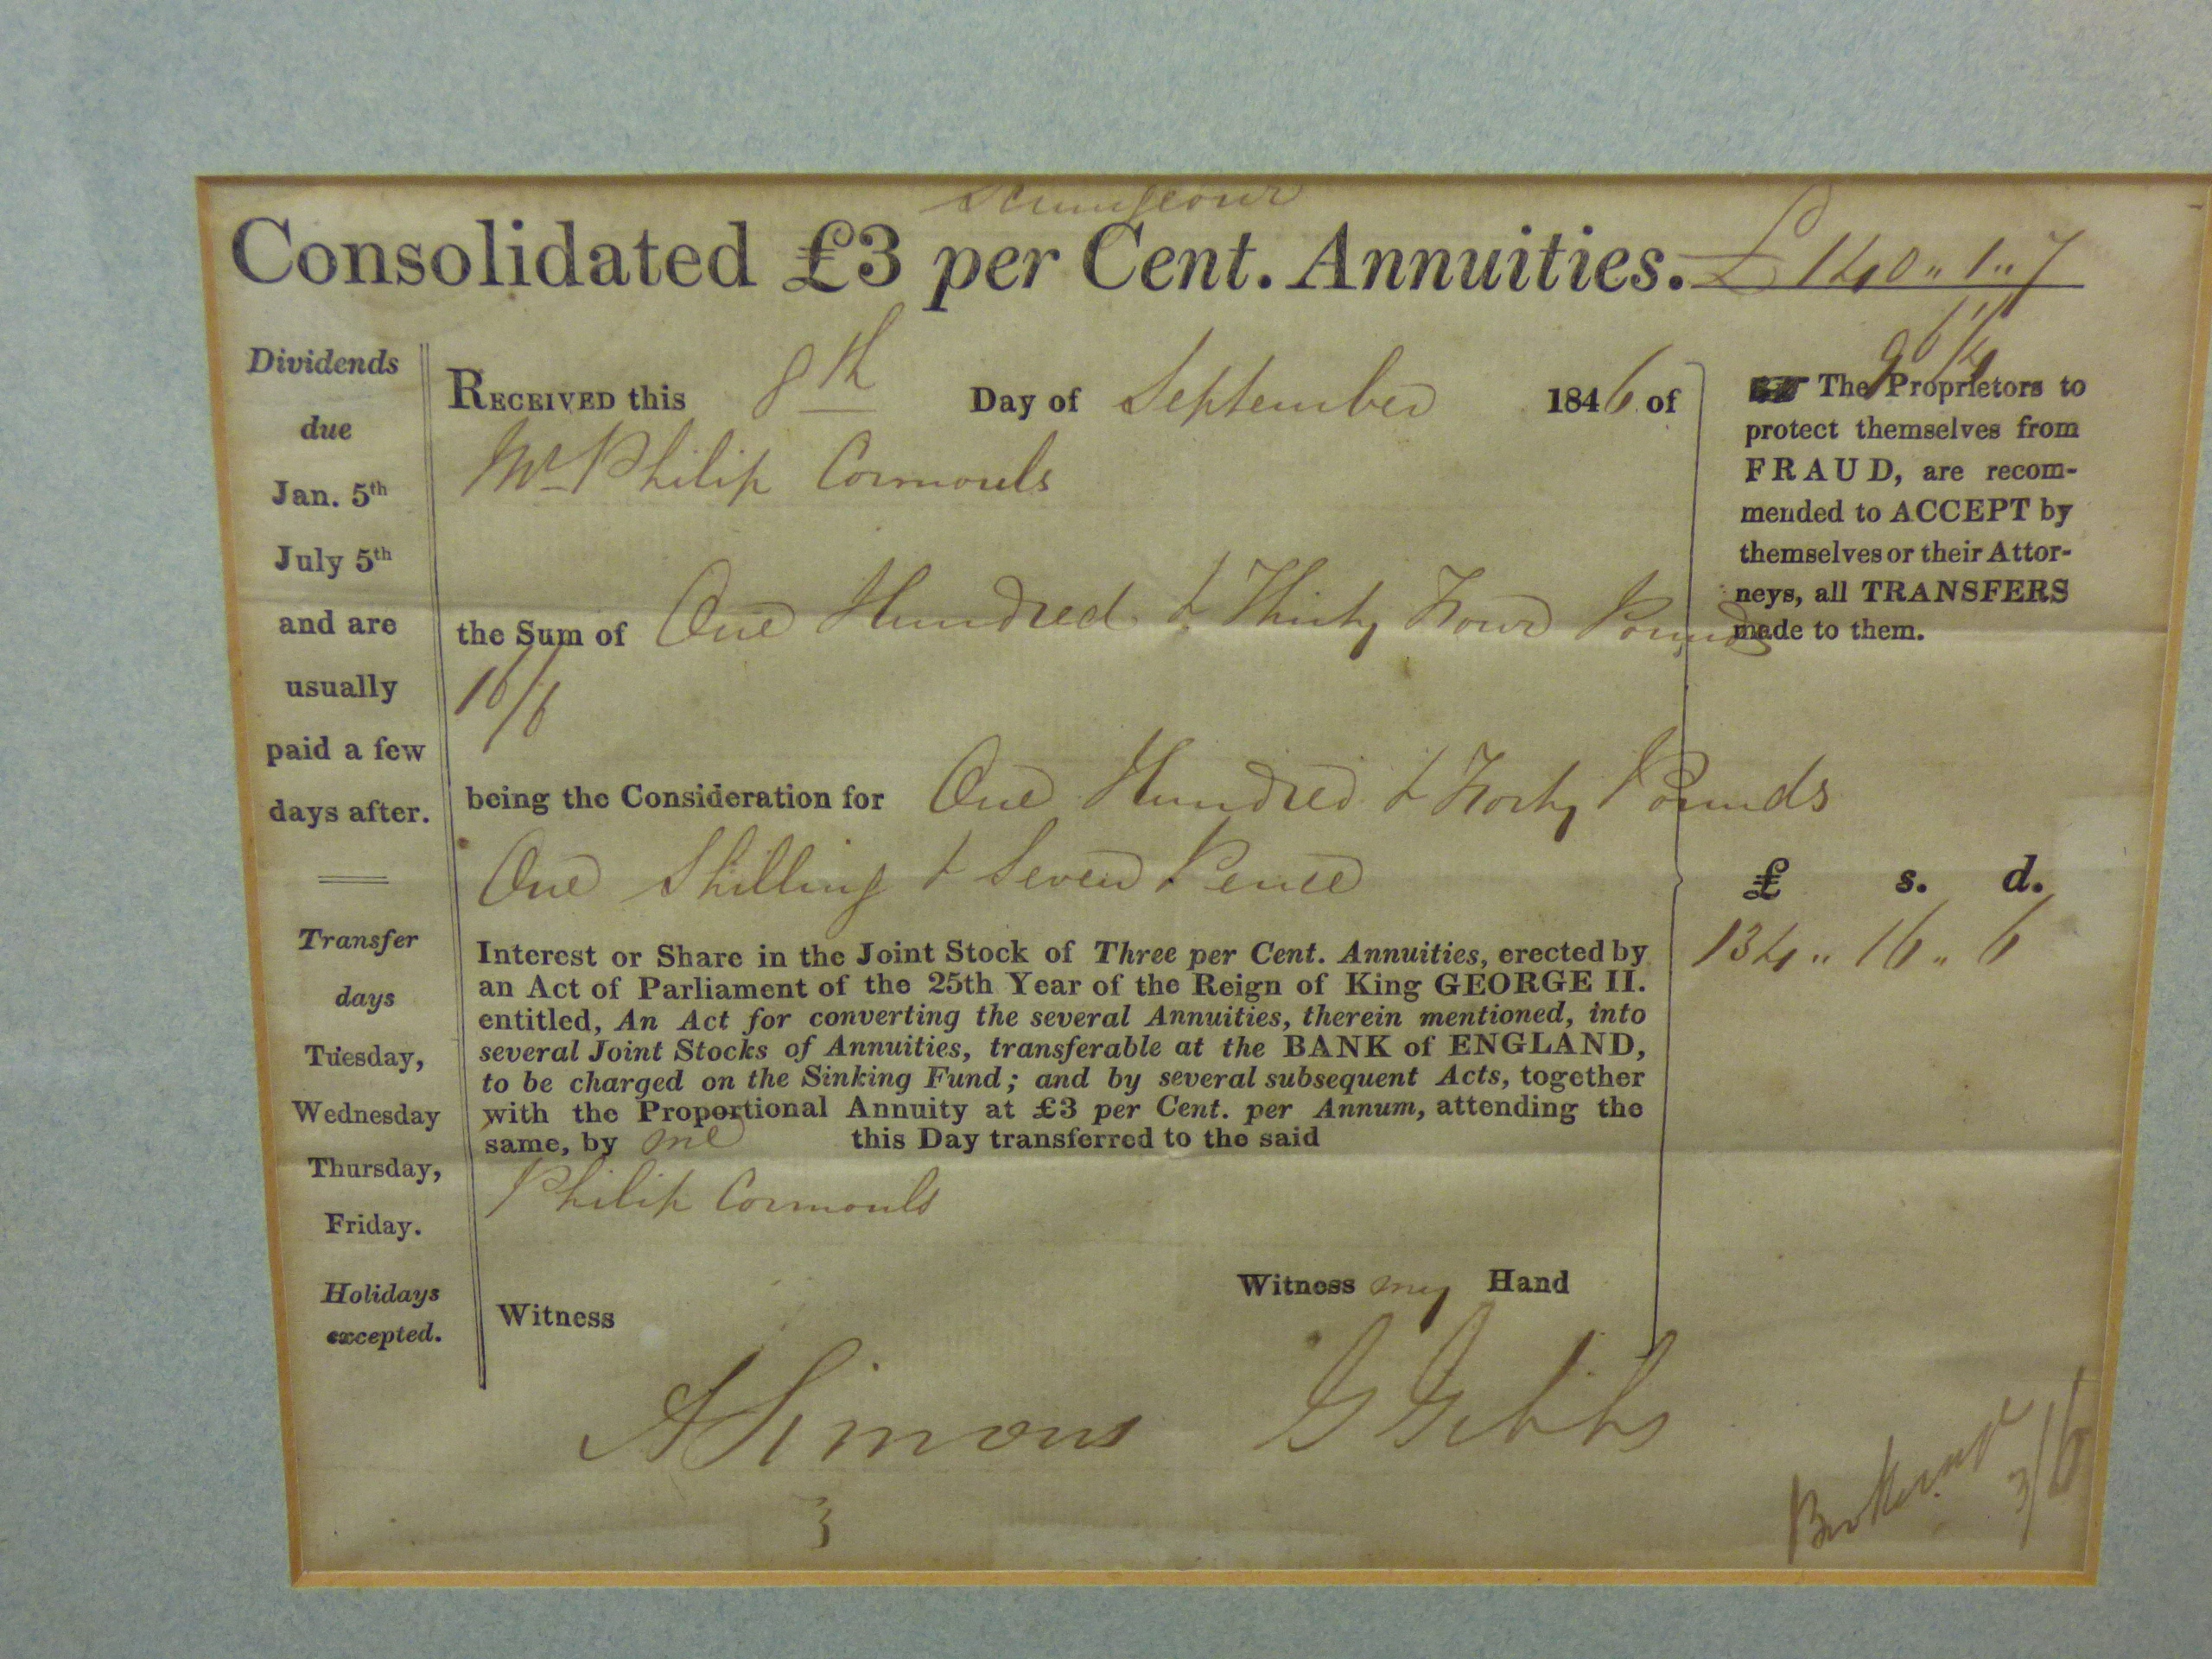 Scrimgeour
Consolidated £3 per Cent. Annuities. £140 〃 1 〃 7
96 1/4
Dividends
due
Jan. 5th
July 5th
and are
usually
paid a few
days after.
Transfer
days
Tuesday,
Wednesday
Thursday,
Friday.
Holidays
excepted.
RECEIVED this 8th Day of September 1846 of
Mr Philip Cormouls
the Sum of One Hundred & Thirty Four Pounds
16/6
being the Consideration for One Hundred & Forty Pounds
One Shilling & Seven Pence
Interest or Share in the Joint Stock of Three per Cent. Annuities, erected by
an Act of Parliament of the 25th Year of the Reign of King GEORGE II.
entitled, An Act for converting the several Annuities, therein mentioned, into
several Joint Stocks of Annuities, transferable at the BANK of ENGLAND,
to be charged on the Sinking Fund; and by several subsequent Acts, together
with the Proportional Annuity at £3 per Cent. per Annum, attending the
same, by me this Day transferred to the said
Philip Cormouls
Witness my Hand
Witness
A Simons G Gibbs
3
The Proprietors to
protect themselves from
FRAUD, are recom-
mended to ACCEPT by
themselves or their Attor-
neys, all TRANSFERS
made to them.
£ s. d.
134 〃 16 〃 6
3/6